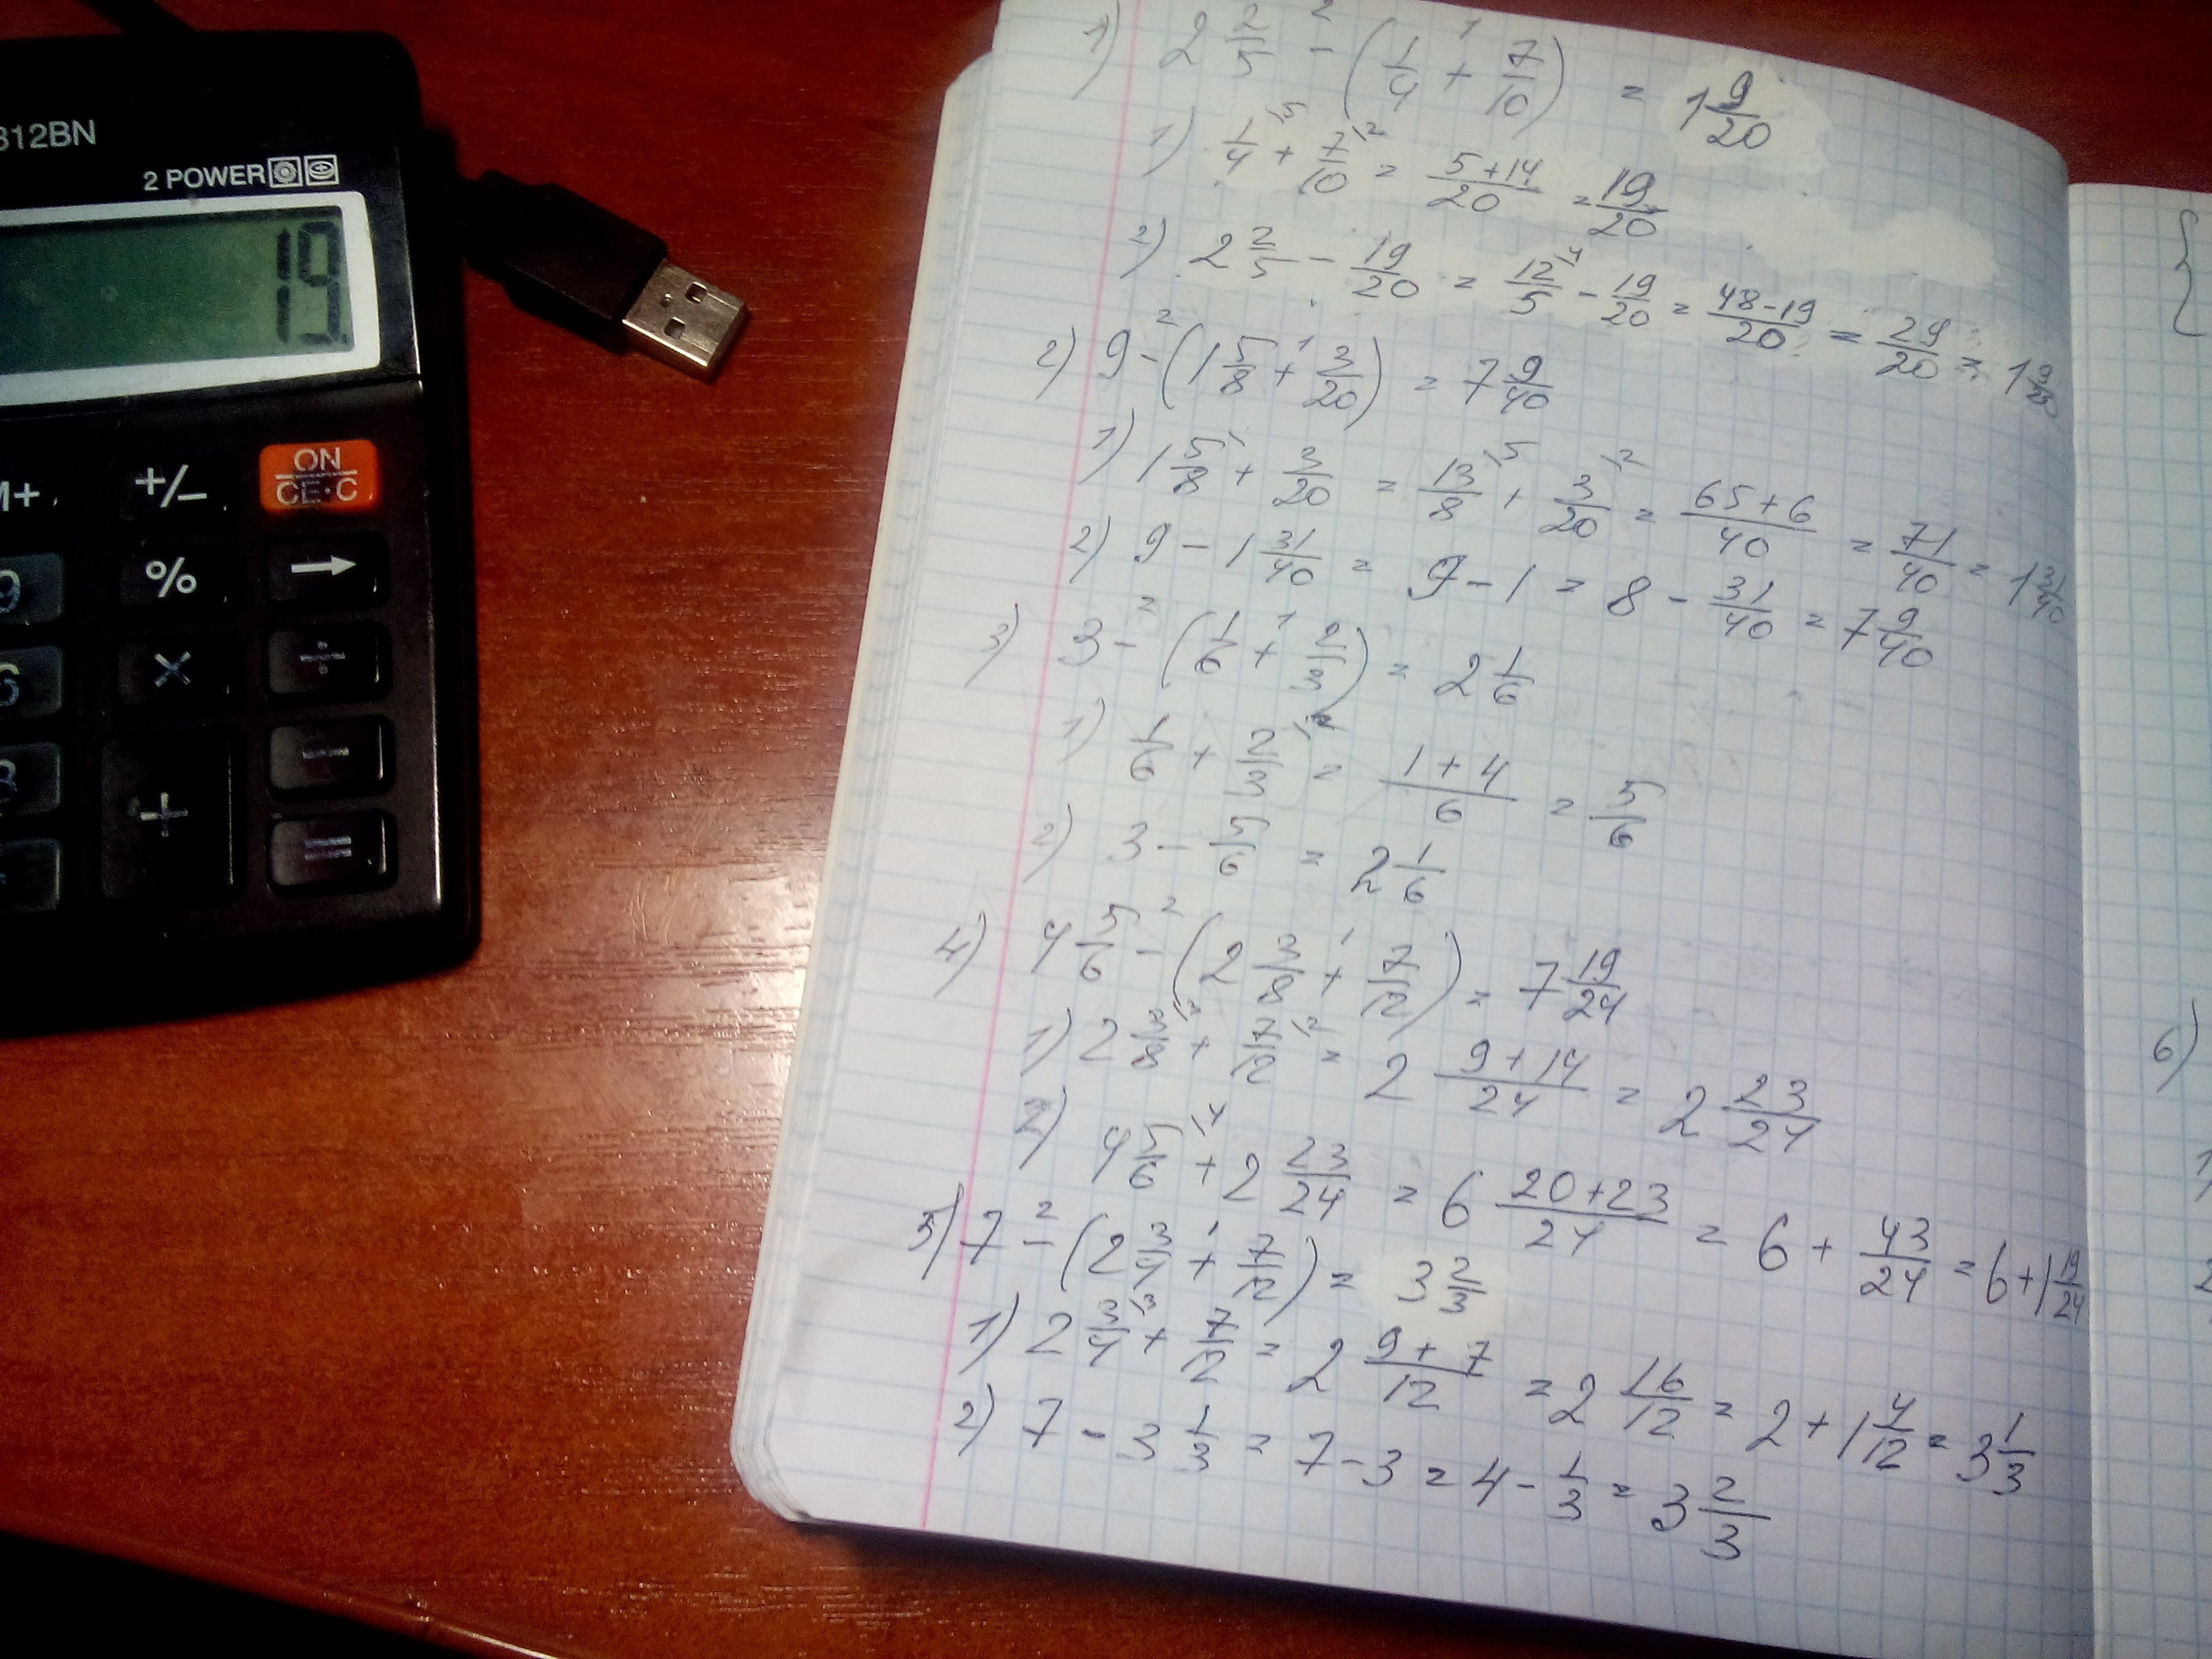 312BN
2 POWER
19.
M+ +/- ON
CE·C
9 % →
6 × ÷
3 + −
=
1) 2 2/5 - (1/4 + 7/10) = 1 9/20
1) 1/4 + 7/10 = (5+14)/20 = 19/20
2) 2 2/5 - 19/20 = 12/5 - 19/20 = (48-19)/20 = 29/20 = 1 9/20
2) 9 - (1 5/8 + 3/20) = 7 9/40
1) 1 5/8 + 3/20 = 13/8 + 3/20 = (65+6)/40 = 71/40 = 1 31/40
2) 9 - 1 31/40 = 9 - 1 = 8 - 31/40 = 7 9/40
3) 3 - (1/6 + 2/3) = 2 1/6
1) 1/6 + 2/3 = (1+4)/6 = 5/6
2) 3 - 5/6 = 2 1/6
4) 4 5/6 - (2 3/8 + 7/12) = 7 19/24
1) 2 3/8 + 7/12 = 2 (9+14)/24 = 2 23/24
2) 4 5/6 + 2 23/24 = 6 (20+23)/24 = 6 + 43/24 = 6 + 1 19/24
5) 7 - (2 3/4 + 7/12) = 3 2/3
1) 2 3/4 + 7/12 = 2 (9+7)/12 = 2 16/12 = 2 + 1 4/12 = 3 1/3
2) 7 - 3 1/3 = 7 - 3 = 4 - 1/3 = 3 2/3
6)